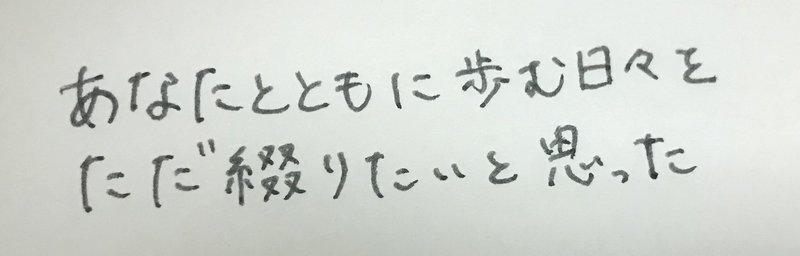 あなたとともに歩む日々を
ただ綴りたいと思った